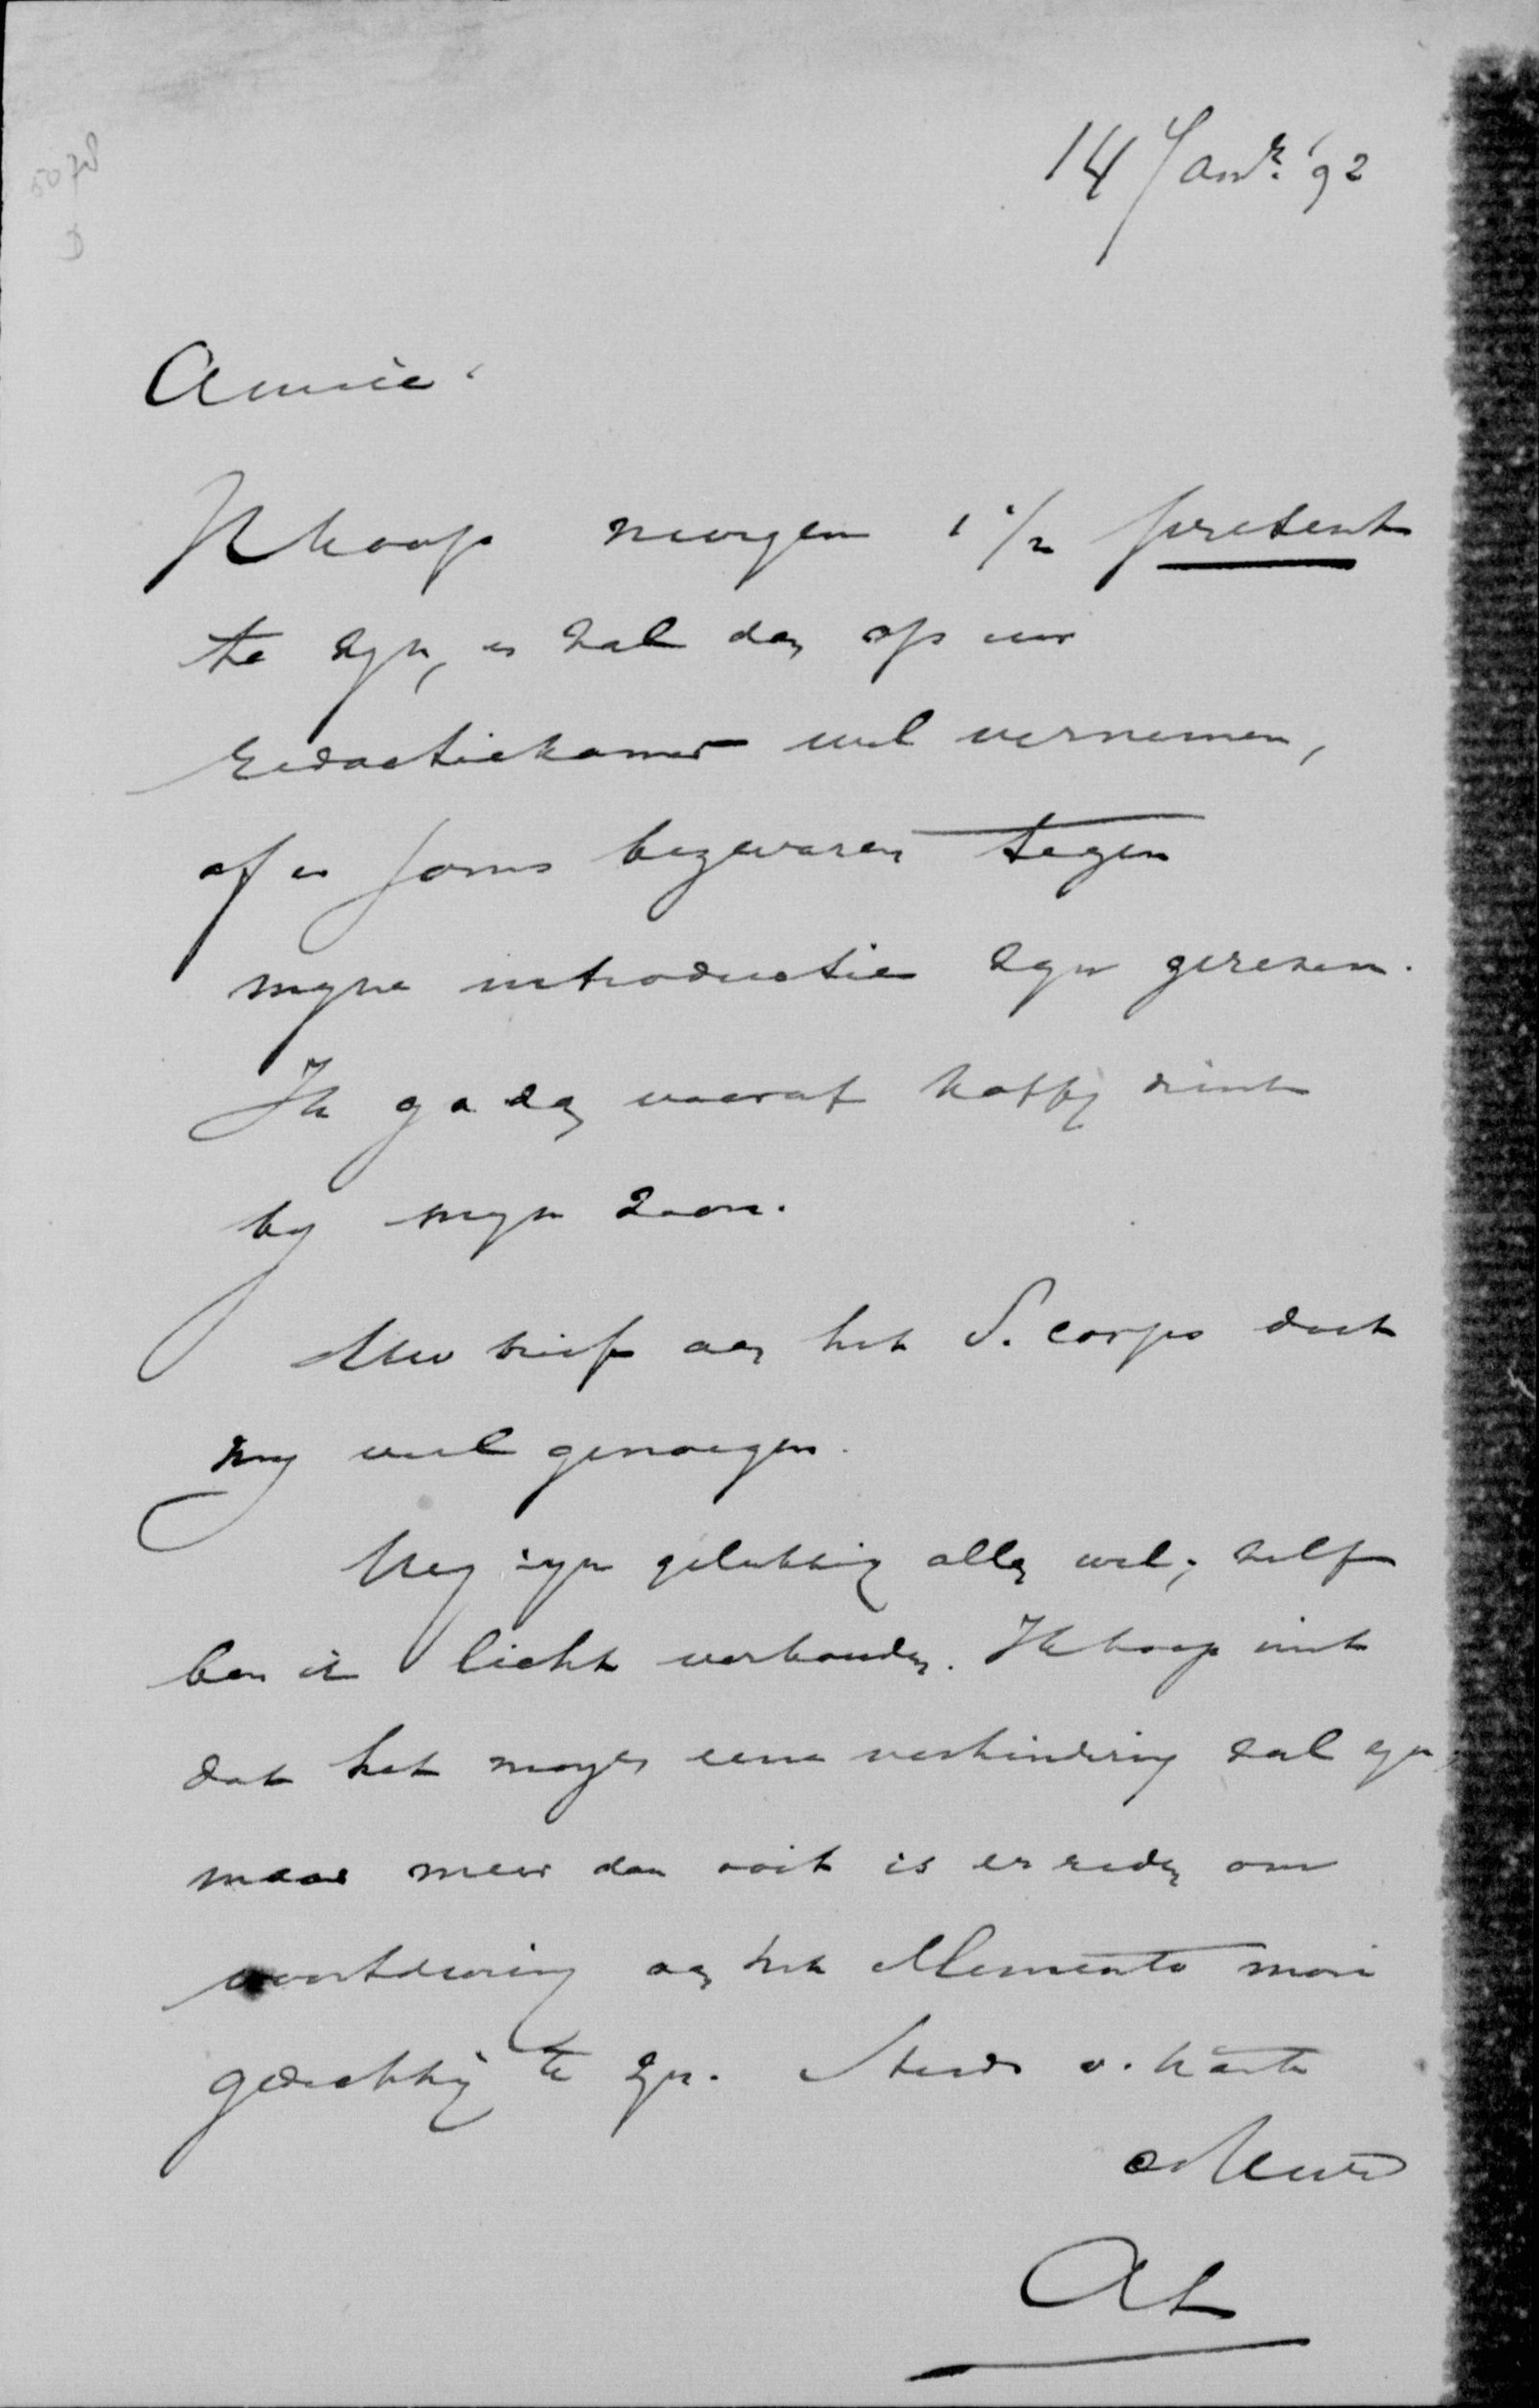 5078
D
14 Janr. '92
Amice!
Ik hoop morgen 1 1/2 present
te zyn, en zal dan op uw
redactiekamer wel vernemen,
of er soms bezwaren tegen
myne introductie zyn gerezen.
Ik ga dan vooraf koffy drink
by myn zoon.
Uw brief aan het S. corps doet
my veel genoegen.
Wy zyn gelukkig allen wel; zelf
ben ik licht verkouden. Ik hoop niet
dat het morgen eene verhindering zal zyn,
maar meer dan ooit is er reden om
voortdurend aan het Memento mori
gedachtig te zyn. Steeds v. harte
de Uwe
AL